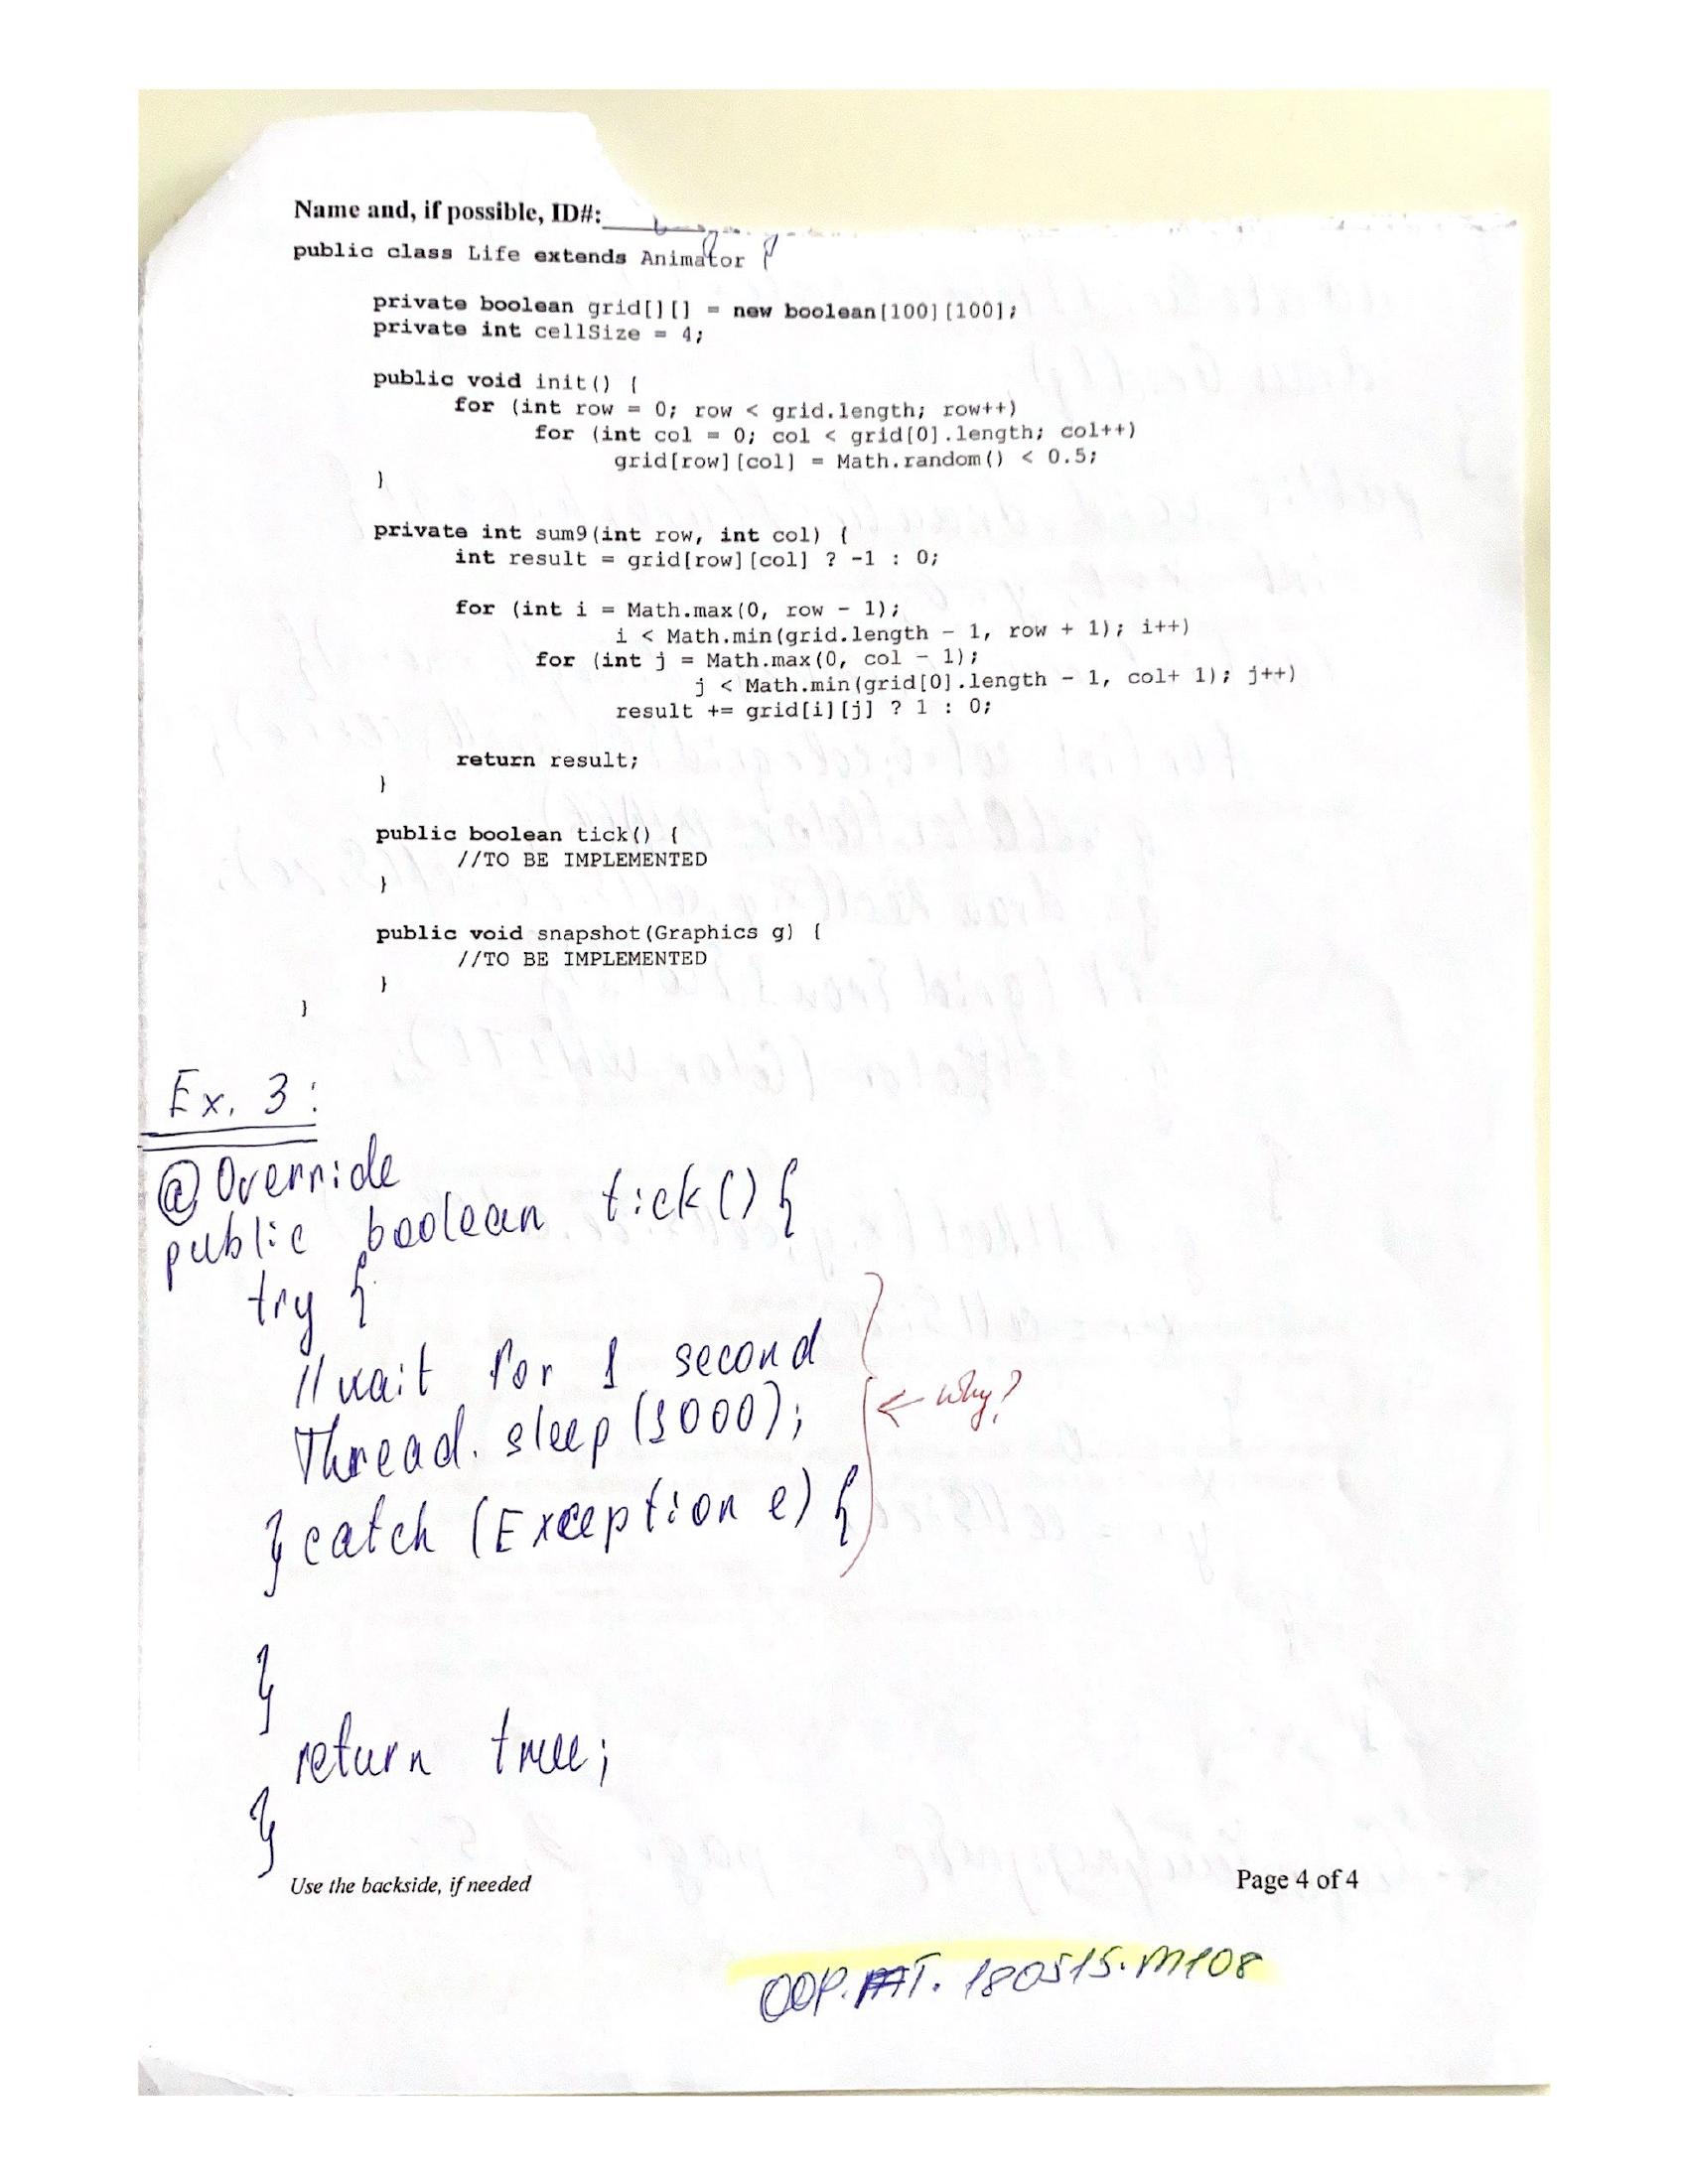 Name and, if possible, ID#:
public class Life extends Animator {
private boolean grid[][] = new boolean[100][100];
private int cellSize = 4;
public void init() {
for (int row = 0; row < grid.length; row++)
for (int col = 0; col < grid[0].length; col++)
grid[row][col] = Math.random() < 0.5;
}
private int sum9(int row, int col) {
int result = grid[row][col] ? -1 : 0;
for (int i = Math.max(0, row - 1);
i < Math.min(grid.length - 1, row + 1); i++)
for (int j = Math.max(0, col - 1);
j < Math.min(grid[0].length - 1, col+ 1); j++)
result += grid[i][j] ? 1 : 0;
return result;
}
public boolean tick() {
//TO BE IMPLEMENTED
}
public void snapshot(Graphics g) {
//TO BE IMPLEMENTED
}
}
Ex. 3:
@Override
public boolean tick() {
try {
//wait for 1 second
Thread.sleep(1000);
← why?
} catch (Exception e) {
}
return true;
}
Use the backside, if needed
Page 4 of 4
OOP.MT.180515.M108